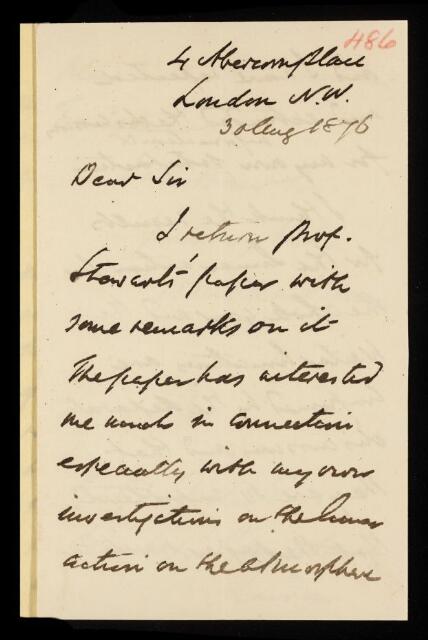 486
4 Abercorn Place
London N.W.
30 Aug 1876
Dear Sir
I return Prof.
Stewart's paper with
some remarks on it
The paper has interested
me much in connection
especially with my own
investigations on the lunar
action on the atmosphere